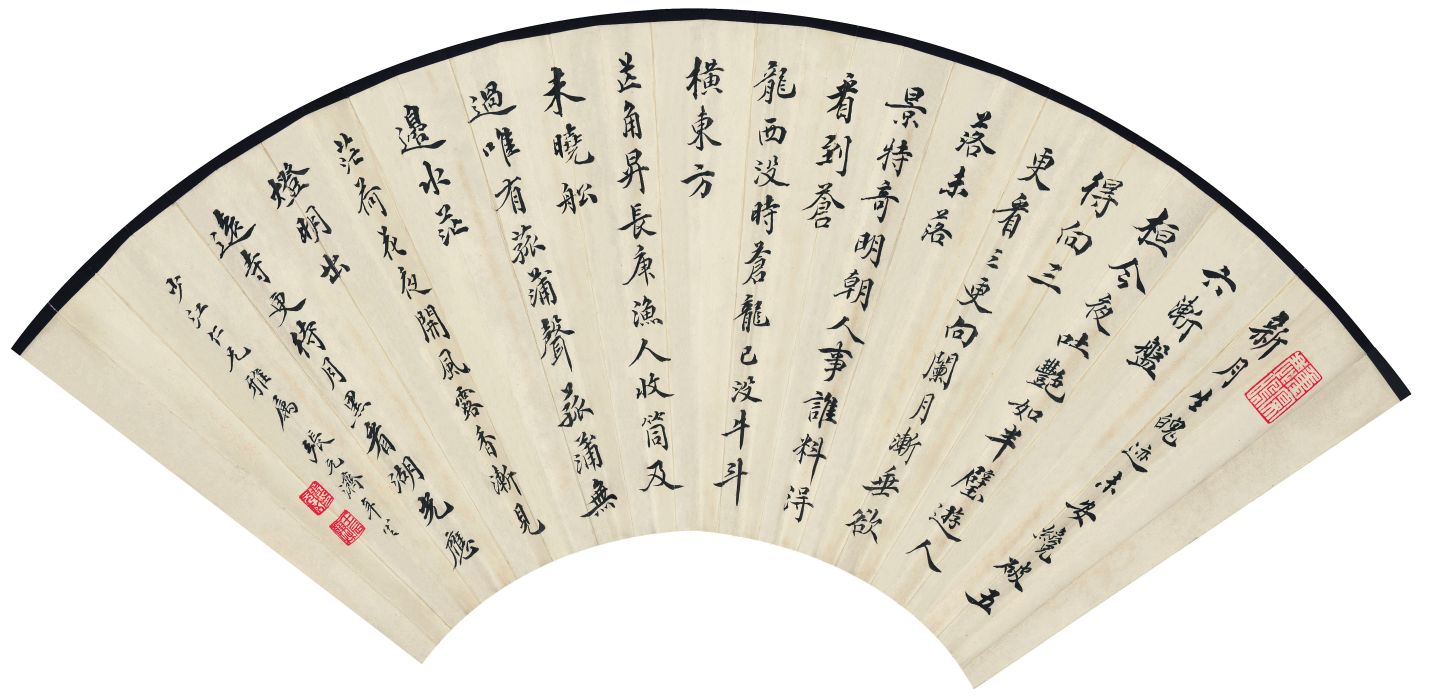 新月生魄迹未安纔破五
六漸盤
桓今夜吐艷如半璧遊人
得向三
更看三更向闌月漸垂欲
落未落
景特奇明朝人事誰料得
看到蒼
龍西没時蒼龍已没牛斗
橫東方
芒角昇長庚漁人收筒及
未曉舩
過唯有菰蒲聲菰蒲無
邊水茫
茫荷花夜開風露香漸見
燈明出
遠寺更待月黑看湖光應
江仁兄雅属 張元濟